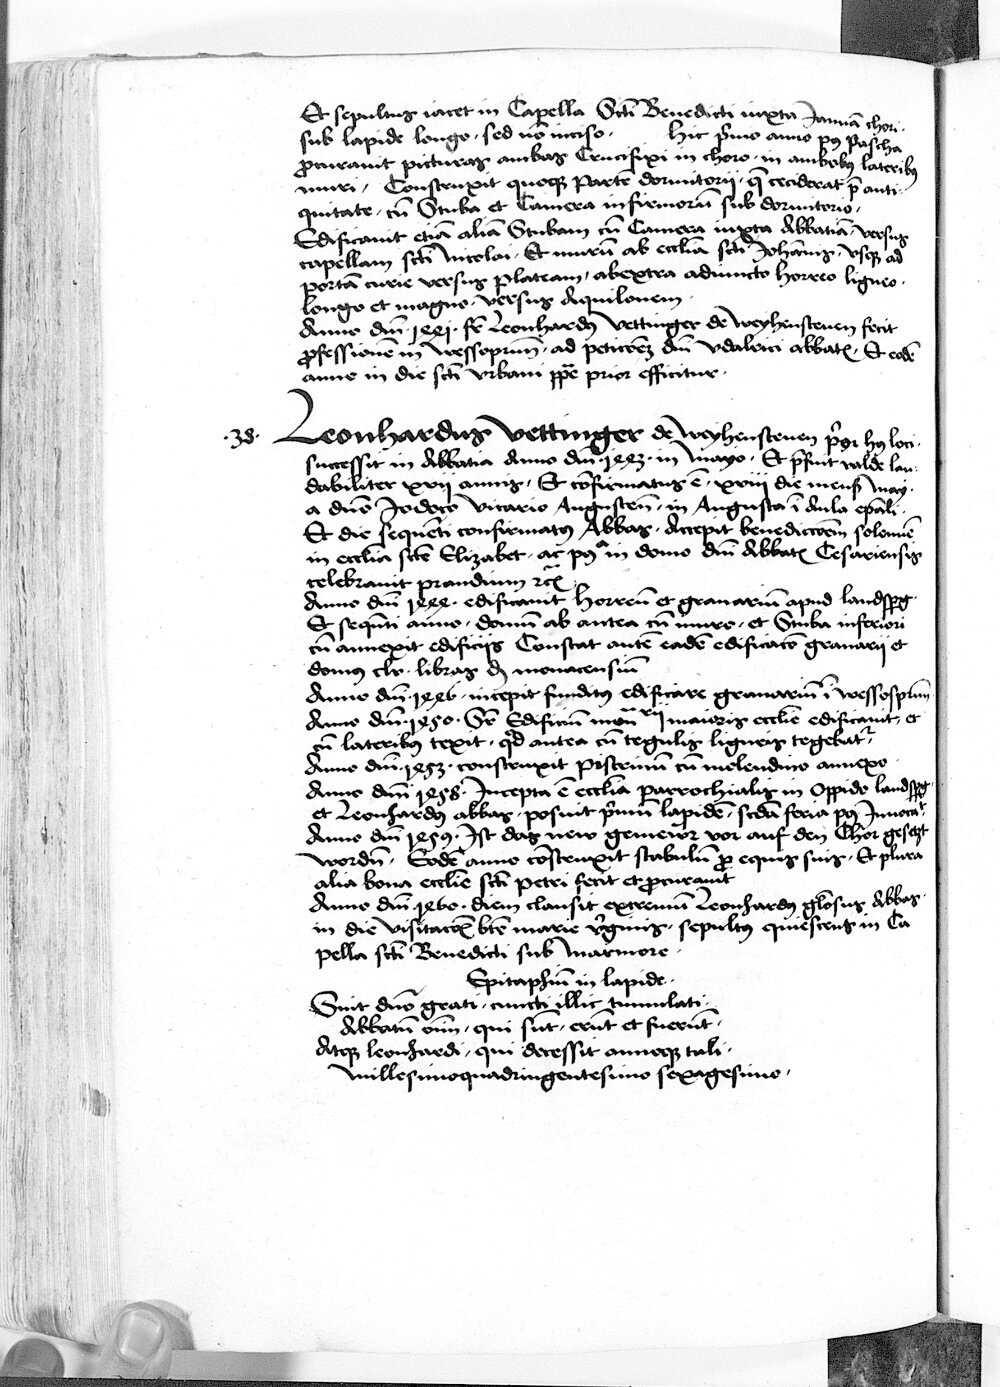 Et sepultus iacet in Capella Scti Benedicti iuxta Januā chori·
sub lapide longo · sed nō inciso · Hic p̄mo anno pꝰ Pascha
ꝓcurauit picturas ambas Crucifixi in choro · in ambobꝰ lateribꝰ
muri · Construxit quoqꝫ partē dormitorij · q̄ ceciderat p̄ anti-
quitate · cū Stuba et Camera infirmorū sub dormitorio ·
Edificauit etiā aliā Stubam cū Camera iuxta Abbatiā · versus
capellam scti Nicolai · Et murū ab ecclīa scti Johānis · vsqꝫ ad
portā curie versus plateam · abextra adiuncto horreo ligneo ·
longo et magno · versus Aquilonem ·
Anno dnī · 1441 · fr̄ Leonhardꝰ Vettinger de Weyhensteuen fecit
ꝓfessionē in Wessoprun̄ · ad peticōeꝫ dnī Vdalrici abbatꝭ · Et eodē
anno in die scti Vrbani pp̄e prior efficitur ·
·38· Leonhardus Vettinger de Weyhensteuen p̄or hꝰ loci ·
successit in Abbatia Anno dnī · 1443 · in Mayo · Et p̄fuit valde lau-
dabiliter xvij annis · Et cōfirmatus ē · xviij die mens̄ May ·
a dnō Jodoco Vicario Augusten̄ · in Augusta ī Aula ep̄ali ·
Et die sequēti confirmatꝰ Abbas · Accepit benedictōem solennē
in ecclīa scte Elizabet · ac pꝰ in domo dnī Abbatꝭ Cesariensis
celebrauit prandium ꝛcꝭ
Anno dnī 1444 · edificauit horreū et granariū apud landsp̄g
Et sequēti anno · domū ab antea cū muro · et Stuba inferiori
cū annexit edificijs Constat autē eadē edificatō granarij et
domus clv · libras ₰ monacensiū
Anno dnī · 1446 · incepit funditus edificare granariū ī Wessosprun̄
Anno dnī · 1450 · Edificiū maioris ecclīe edificauit · et
cū lateribus texit · qd̄ antea cū tegulis ligneis tegebat̄ ·
Anno dnī · 1453 · construxit pistrinū cū molendino annexo
Anno dnī 1458 · Incepta ē ecclīa parrochialis in Oppido landsp̄g
et Leonhardꝰ abbas · posuit p̄mū lapidē · scdā feria pꝰ Inuocāt
Anno dnī 1459 · Ist das new gemewr vor auf den Chor gesetzt
wordn̄ · Eodē anno cōstruxit stabulū ꝓ equis suis · Et plura
alia bona ecclīe scti Petri fecit et ꝓcurauit
Anno dnī 1460 · diem clausit extremū Leonhardꝰ gl̄osus Abbas ·
in die Visitacōis btē marie v̄ginis · sepultꝰ quiescens in Ca
pella scti Benedicti sub marmore ·
Epitaphiū in lapide ·
Sint dn̄o grati · cuncti illic tumulati ·
Abbatū oīm · qui sūt · erūt et fuerūt ·
Atqꝫ leonhardi · qui decessit annoqꝫ tali ·
Millesimoquadringentesimo sexagesimo ·